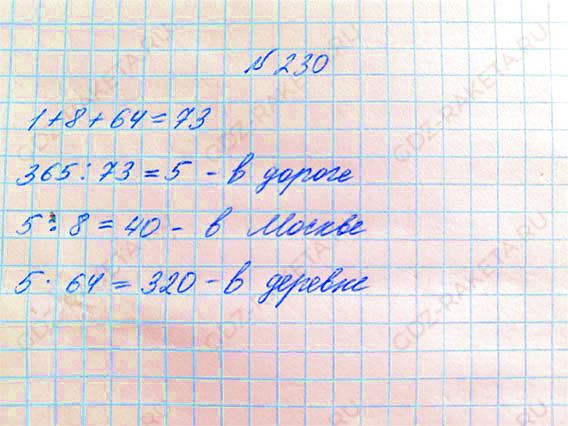 № 230
1+8+64=73
365:73=5 - в дороге
5:8=40 - в Москве
5· 64=320 - в деревне
GDZ-RAKETA.RU